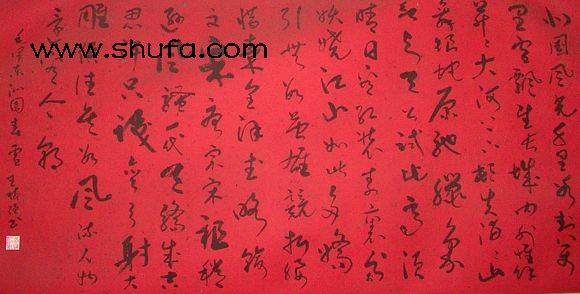 www.shufa.com
北国风光千里冰封万
里雪飘望长城内外惟余
莽莽大河上下顿失滔滔山
舞银蛇原驰蜡象
欲与天公试比高须
晴日看红装素裹分外
妖娆江山如此多娇
引无数英雄竞折腰
惜秦皇汉武略输
文采唐宗宋祖稍
逊风骚一代天骄成吉
思汗只识弯弓射大
雕俱往矣数风流人物
还看今朝
毛泽东沁园春雪